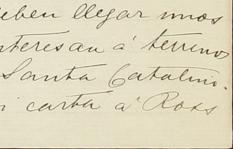 deben llegar unos
interesan á terrenos
Santa Catalina.
i carta á Ross